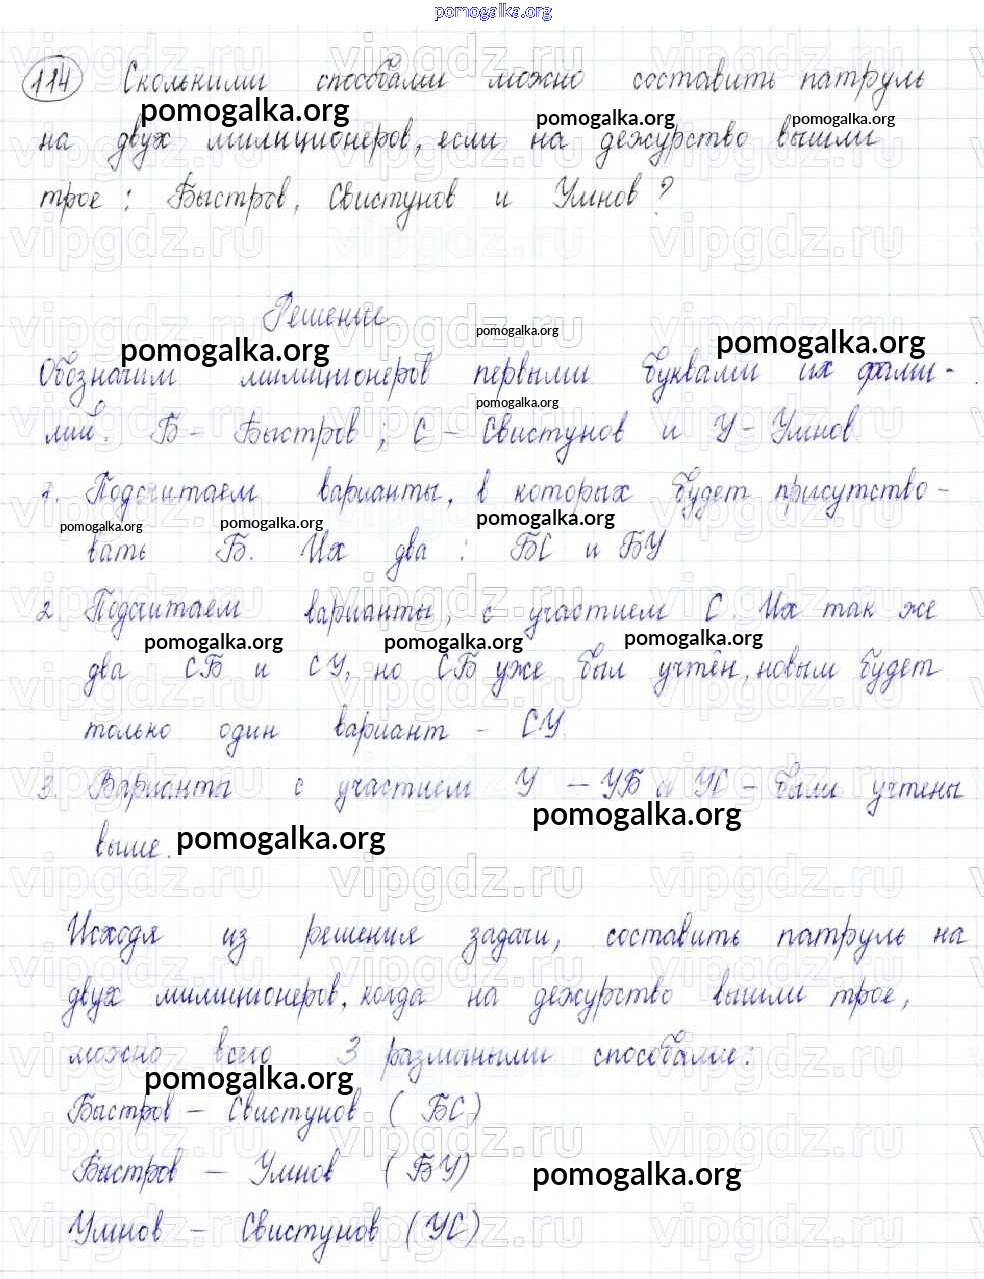 pomogalka.org
114 Сколькими способами можно составить патруль
pomogalka.org pomogalka.org pomogalka.org
на двух милиционеров, если на дежурство вышли
трое: Быстров, Свистунов и Умнов?
Решение
pomogalka.org pomogalka.org pomogalka.org
Обозначим милиционеров первыми буквами их фами-
pomogalka.org
лий. Б - Быстров; С - Свистунов и У - Умнов
1. Подсчитаем варианты, в которых будет присутство-
pomogalka.org pomogalka.org pomogalka.org
вать Б. Их два: БС и БУ
2. Подсчитаем варианты, с участием С. Их так же
pomogalka.org pomogalka.org pomogalka.org
два СБ и СУ, но СБ уже был учтён, новым будет
только один вариант - СУ.
3. Варианты с участием У - УБ и УС - были учтены
pomogalka.org pomogalka.org
выше.
vipgdz.ru vipgdz.ru vipgdz.ru
Исходя из решения задачи, составить патруль на
двух милиционеров, когда на дежурство вышли трое,
можно всего 3 разными способами:
pomogalka.org
Быстров - Свистунов (БС)
Быстров - Умнов (БУ)
pomogalka.org
Умнов - Свистунов (УС)